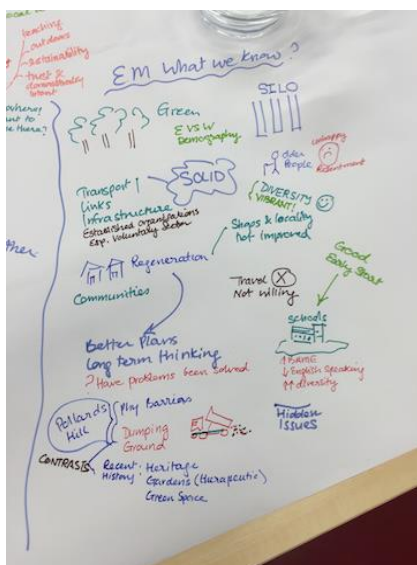 teaching
outdoors
sustainability
trust &
EM What we know?
Green
E VS W
Demography
SILO
Older
People
Unhappy
Resentment
SOLID
Transport
Links
Infrastructure
Established organisations
Esp. Voluntary Sector
DIVERSITY
VIBRANT!
Shops & locality
Not improved
Regeneration
Communities
Travel X
Not willing
Good
Early Start
Schools
↑ BAME
↓ English Speaking
↑↑ diversity
Better Plans
Long Term thinking
? Have problems been solved
Pollards
Hill
Play Barriers
Dumping
Ground
CONTRASTS
Recent : Heritage
History : Gardens (therapeutic)
Green Space
Hidden
Issues